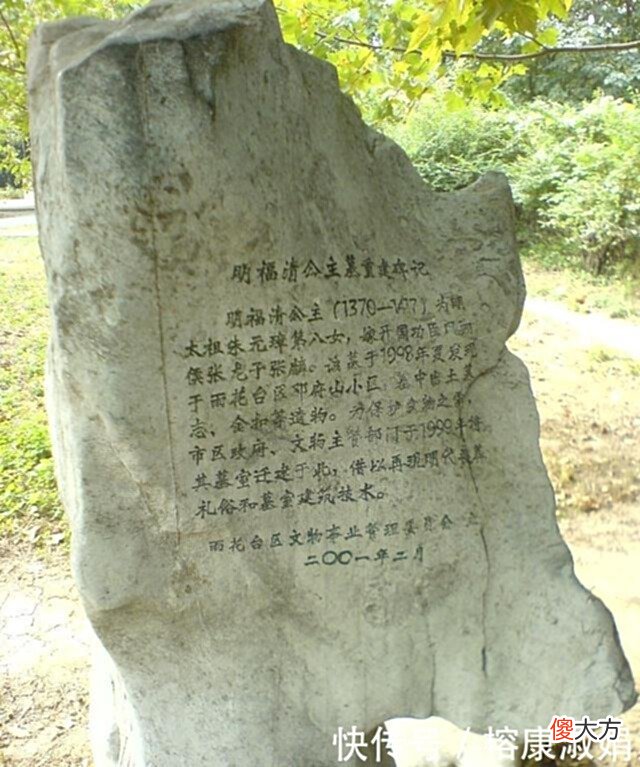 明福清公主墓重建碑记
明福清公主(1370—1417)为明
太祖朱元璋第八女,嫁开国功臣凤翔
侯张龙子张麟。该墓于1998年夏发现
于雨花台区邓府山小区,墓中出土墓
志、金扣等遗物。为保护文物之需,
市区政府、文物主管部门于1999年将
其墓室迁建于此,借以再现明代丧葬
礼俗和墓室建筑技术。
雨花台区文物事业管理委员会 立
二〇〇一年二月
快传号 榕康淑娟
傻大方